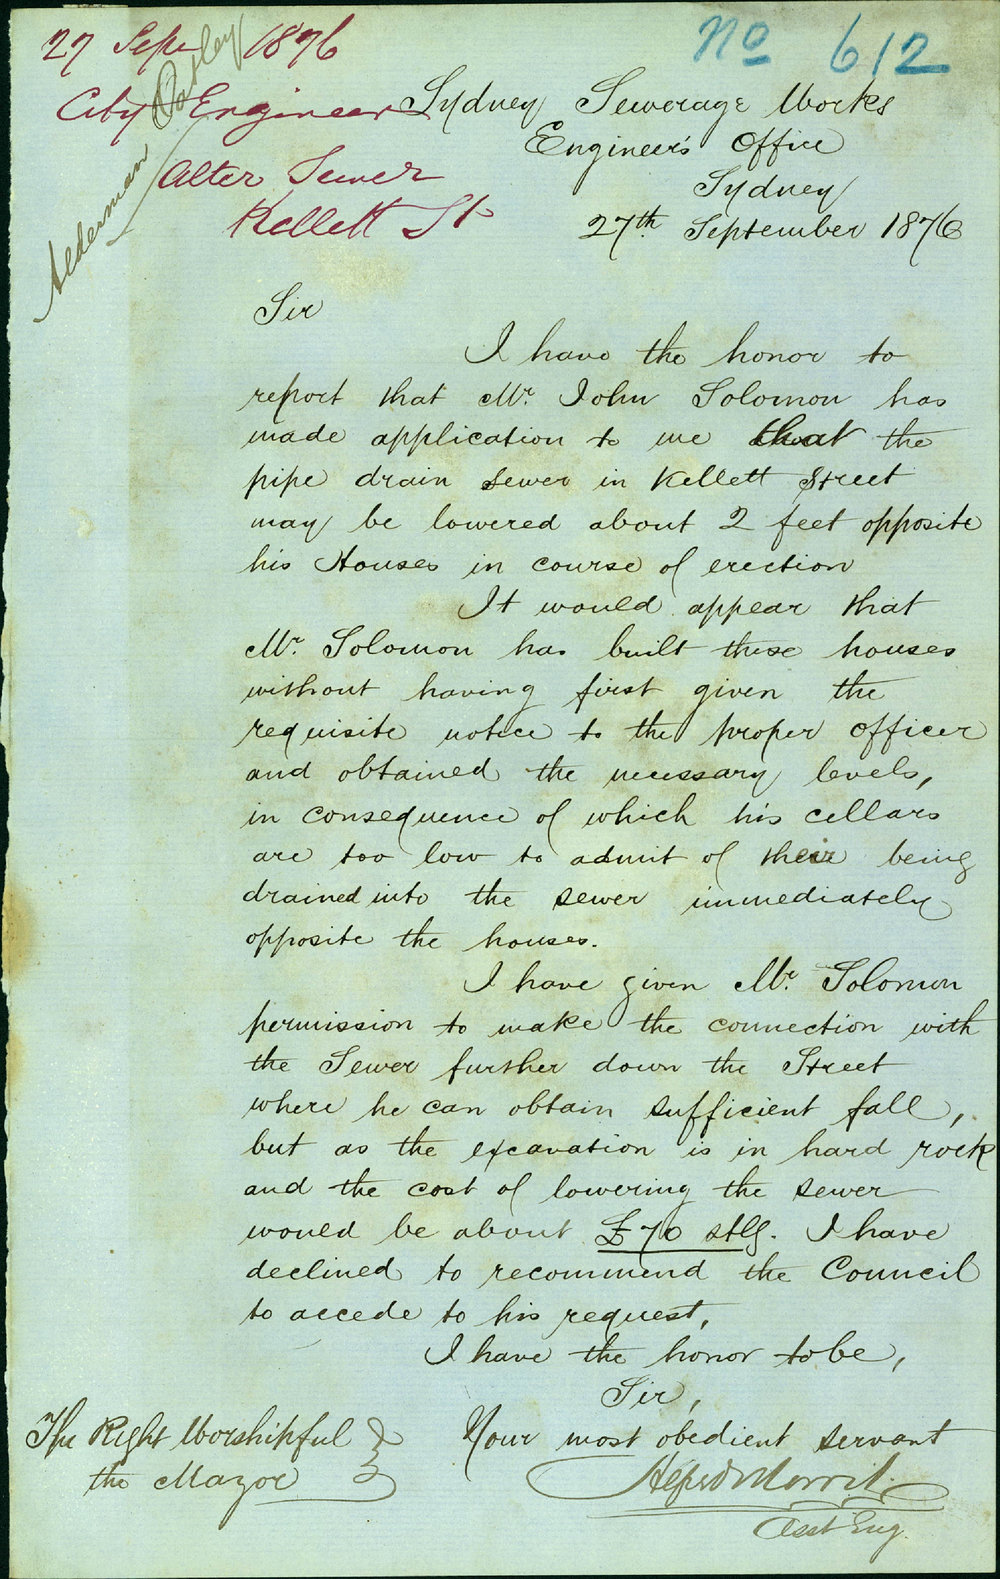 27 Sept 1876
No 612
City Engineer
Alter Sewer
Kellett St
Alderman Oatley
Sydney Sewerage Works
Engineer's Office
Sydney
27th September 1876
Sir
I have the honor to
report that Mr. John Solomon has
made application to me that the
pipe drain sewer in Kellett Street
may be lowered about 2 feet opposite
his Houses in course of erection
It would appear that
Mr. Solomon has built these houses
without having first given the
requisite notice to the proper officer
and obtained the necessary levels,
in consequence of which his cellars
are too low to admit of their being
drained into the sewer immediately
opposite the houses.
I have given Mr. Solomon
permission to make the connection with
the Sewer further down the Street
where he can obtain sufficient fall,
but as the excavation is in hard rock
and the cost of lowering the sewer
would be about £70 stlg. I have
declined to recommend the Council
to accede to his request,
I have the honor to be,
Sir,
Your most obedient servant
The Right Worshipful
the Mayor
Asst Eng.